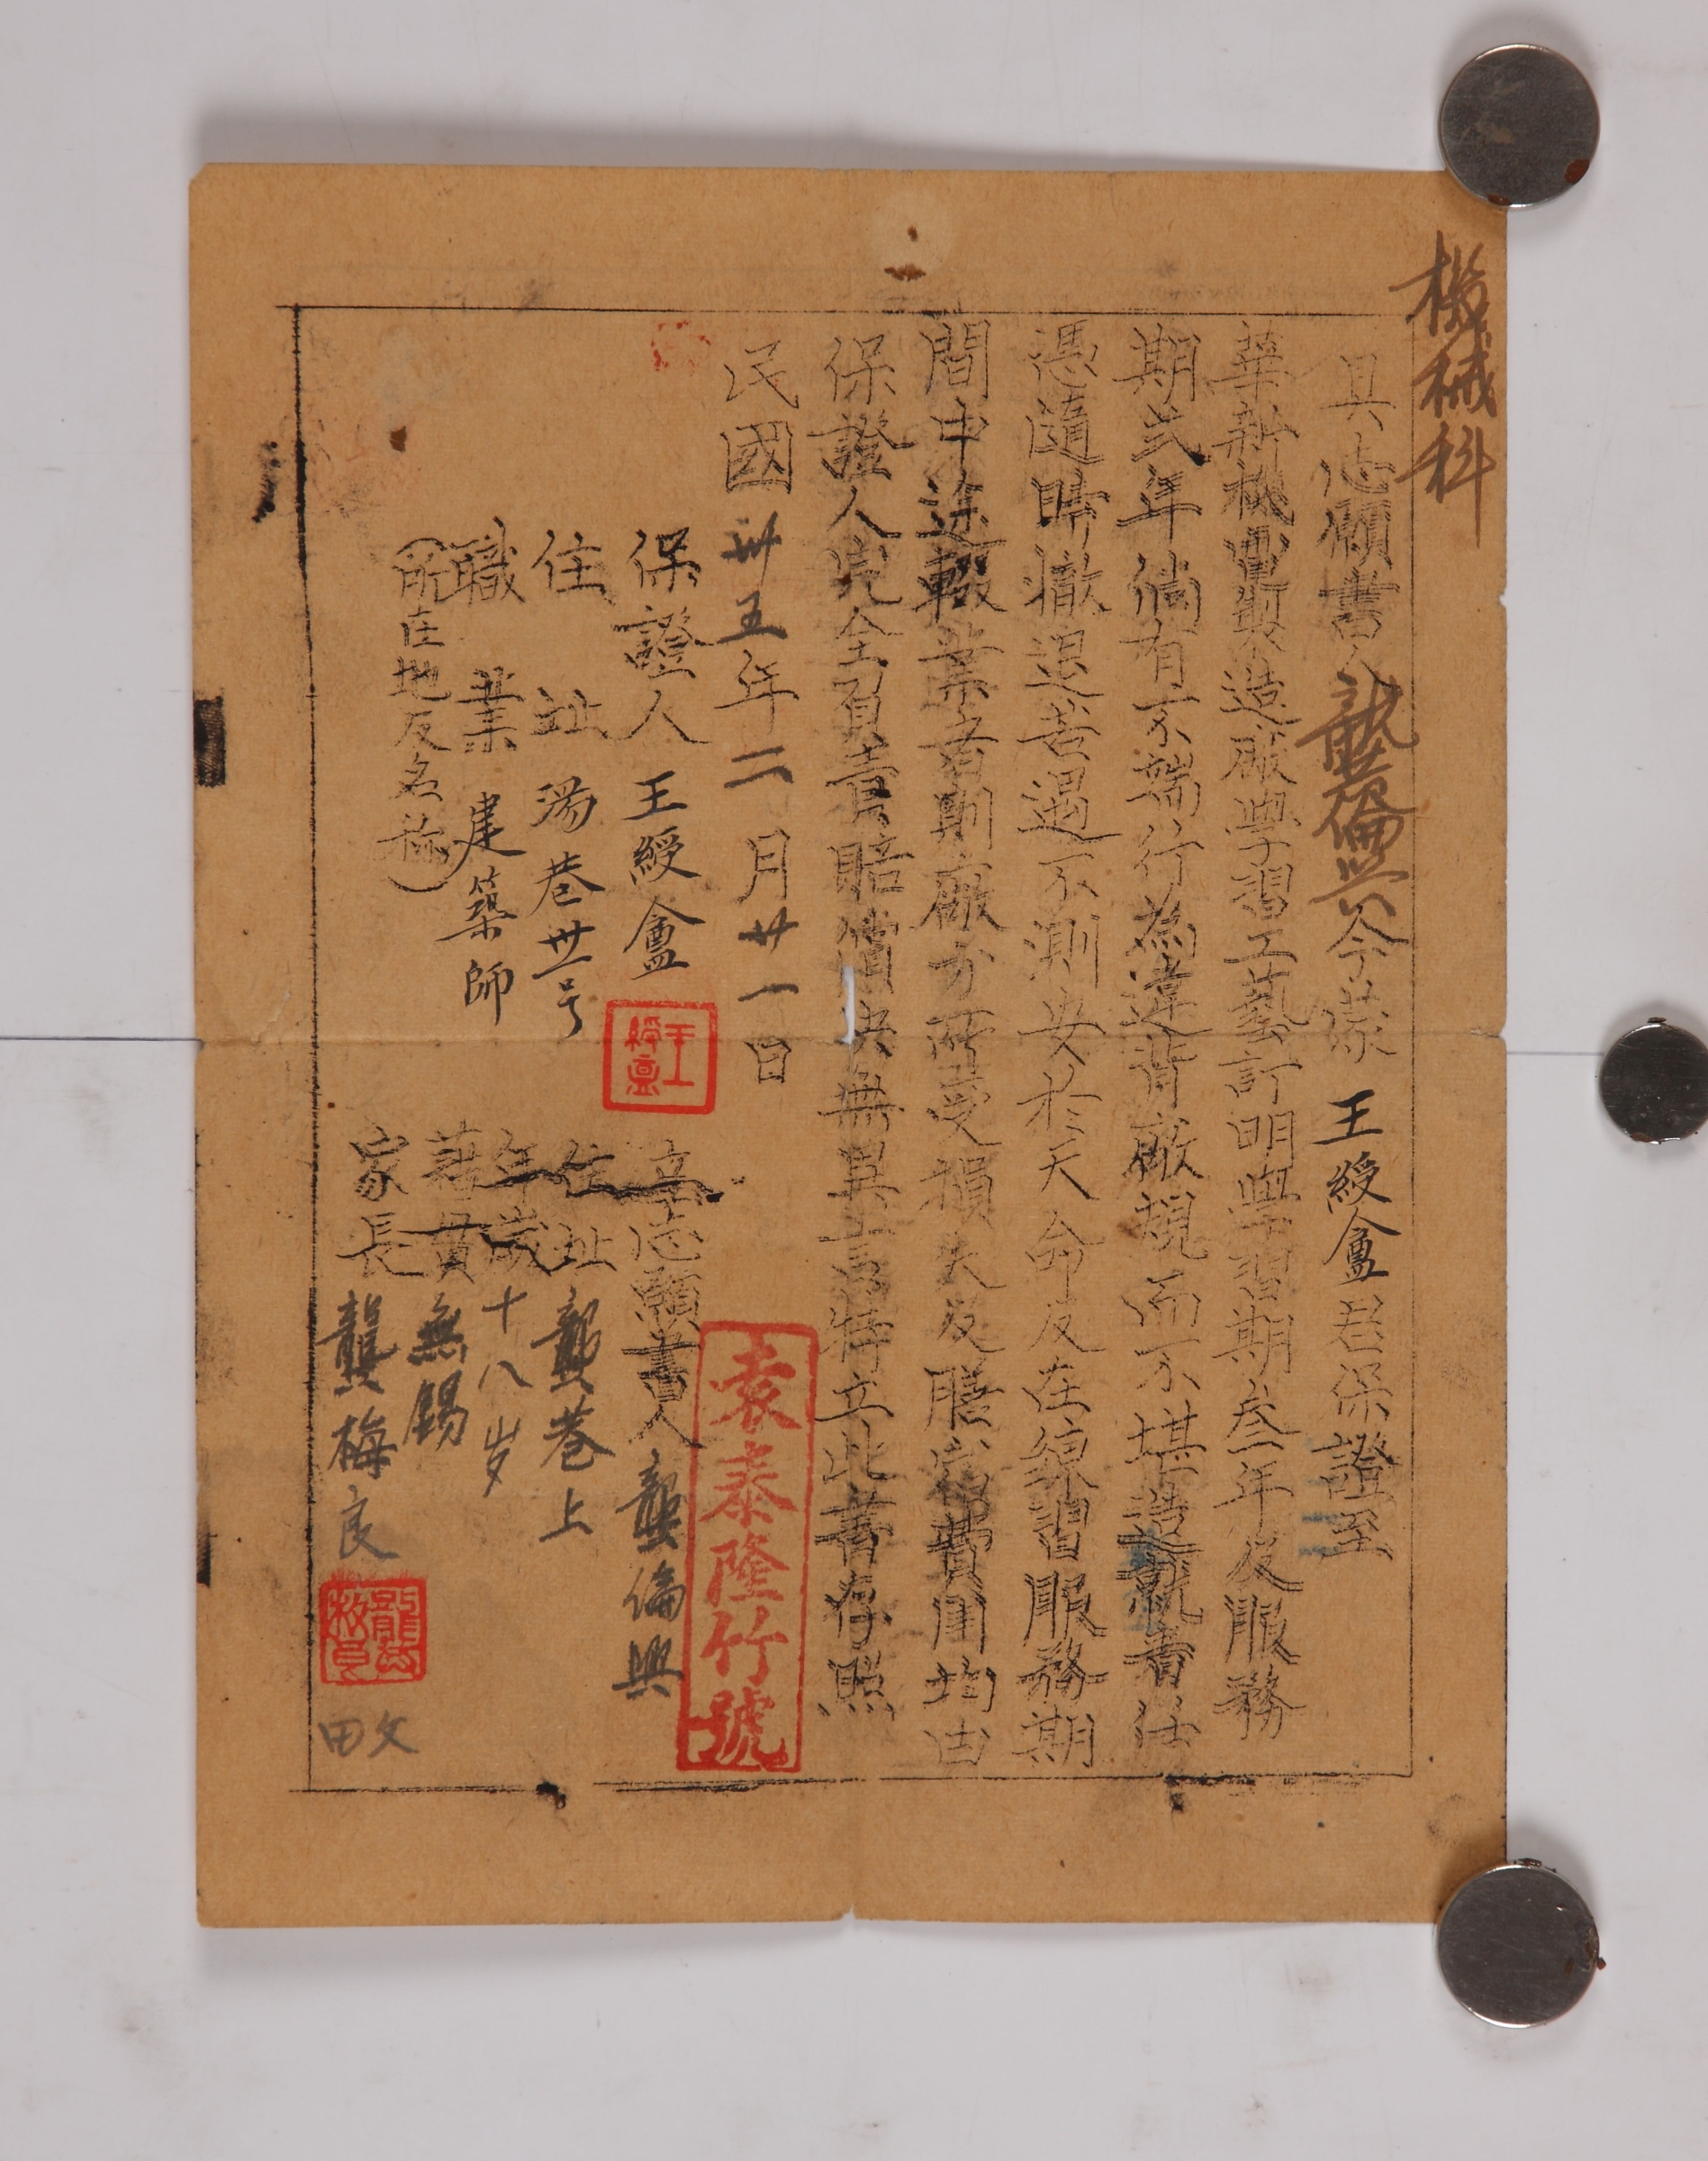 機械科
具志願書人龔倫興今蒙王綬盦君保證至
華新機器製造廠學習工藝訂明學習期叁年及服務
期弍年倘有不端行為違背廠規而不堪造就者任
憑隨時撤退若遇不測安於天命及在練習服務期
間中途輟業者則廠方所受損失及膳宿費用均由
保證人完全負責賠償決無異言特立此書存照
民國卅五年二月廿一日
保證人 王綬盦
住址 湯巷卅一号
職業 建築師
(所在地及名稱)
立志願書人 龔倫興
住址 龔巷上
年歲 十八岁
著貫 無錫
家長 龔梅良
袁泰隆竹號